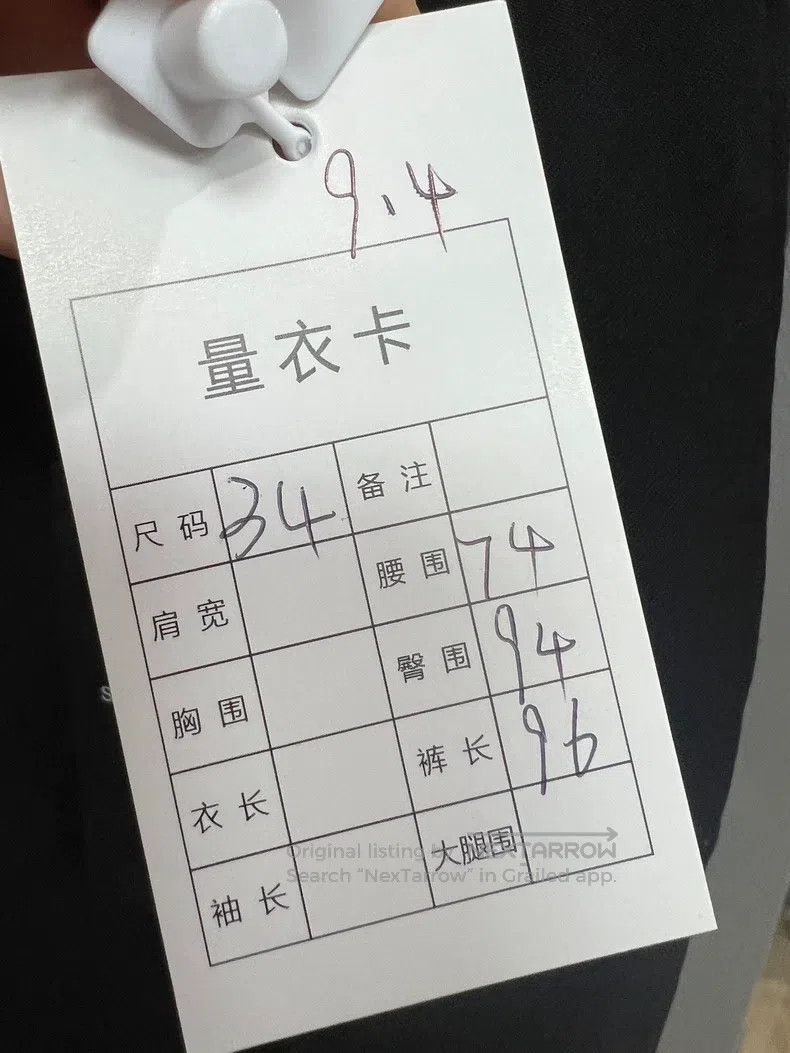 9.4
量衣卡
尺码 34 备注
肩宽 腰围 74
胸围 臀围 94
衣长 裤长 96
袖长 大腿围
Original listing by NEXTARROW
Search "NexTarrow" in Grailed app.